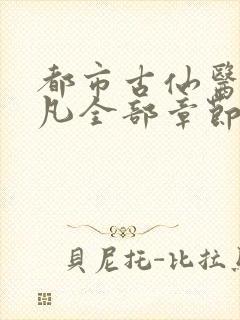 都市古仙醫
凡全部章節
貝尼托-比拉